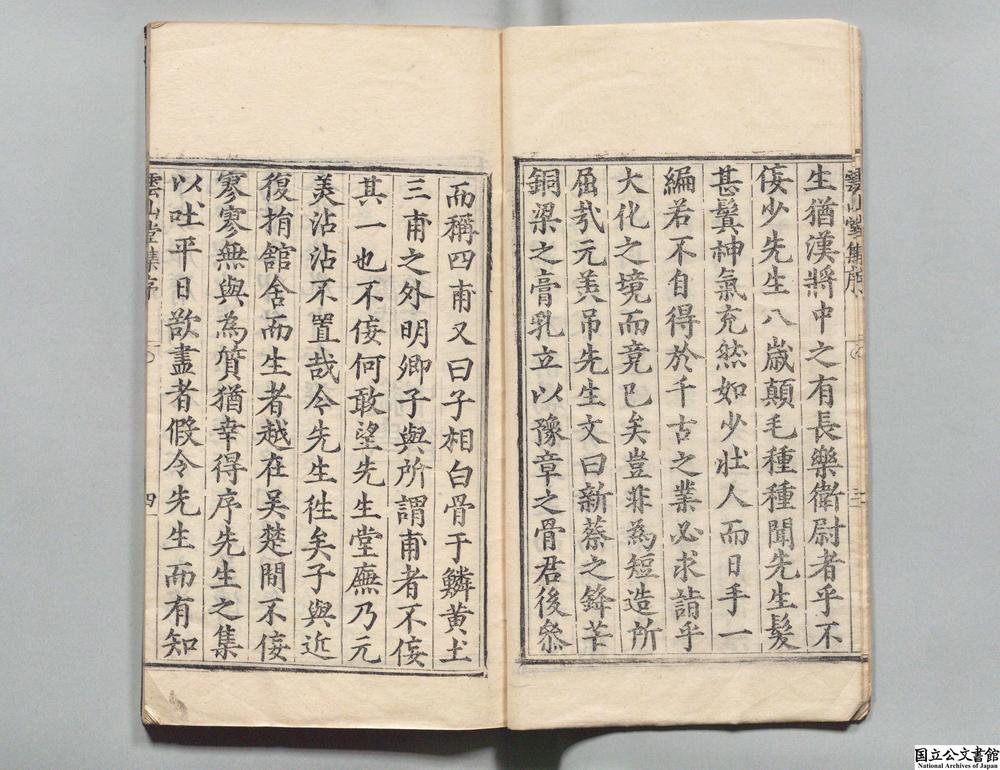 雲山堂集序
三
生猶漢將中之有長樂衛尉者乎不
佞少先生八歲顛毛種種聞先生髮
甚鬒神氣充然如少壯人而日手一
編若不自得於千古之業必求詣乎
大化之境而竟已矣豈非為短造所
屈㢤元美吊先生文曰新蔡之鋒苹
銅梁之膏乳立以豫章之骨君後叅
而稱四甫又曰子相白骨于鱗黃土
三甫之外明卿子與所謂甫者不佞
其一也不佞何敢望先生堂廡乃元
美沾沾不置哉今先生徃矣子與近
復捐舘舍而生者越在吳楚間不佞
寥寥無與為質猶幸得序先生之集
以吐平日欲盡者假令先生而有知
雲山堂集序
四
国立公文書館
National Archives of Japan